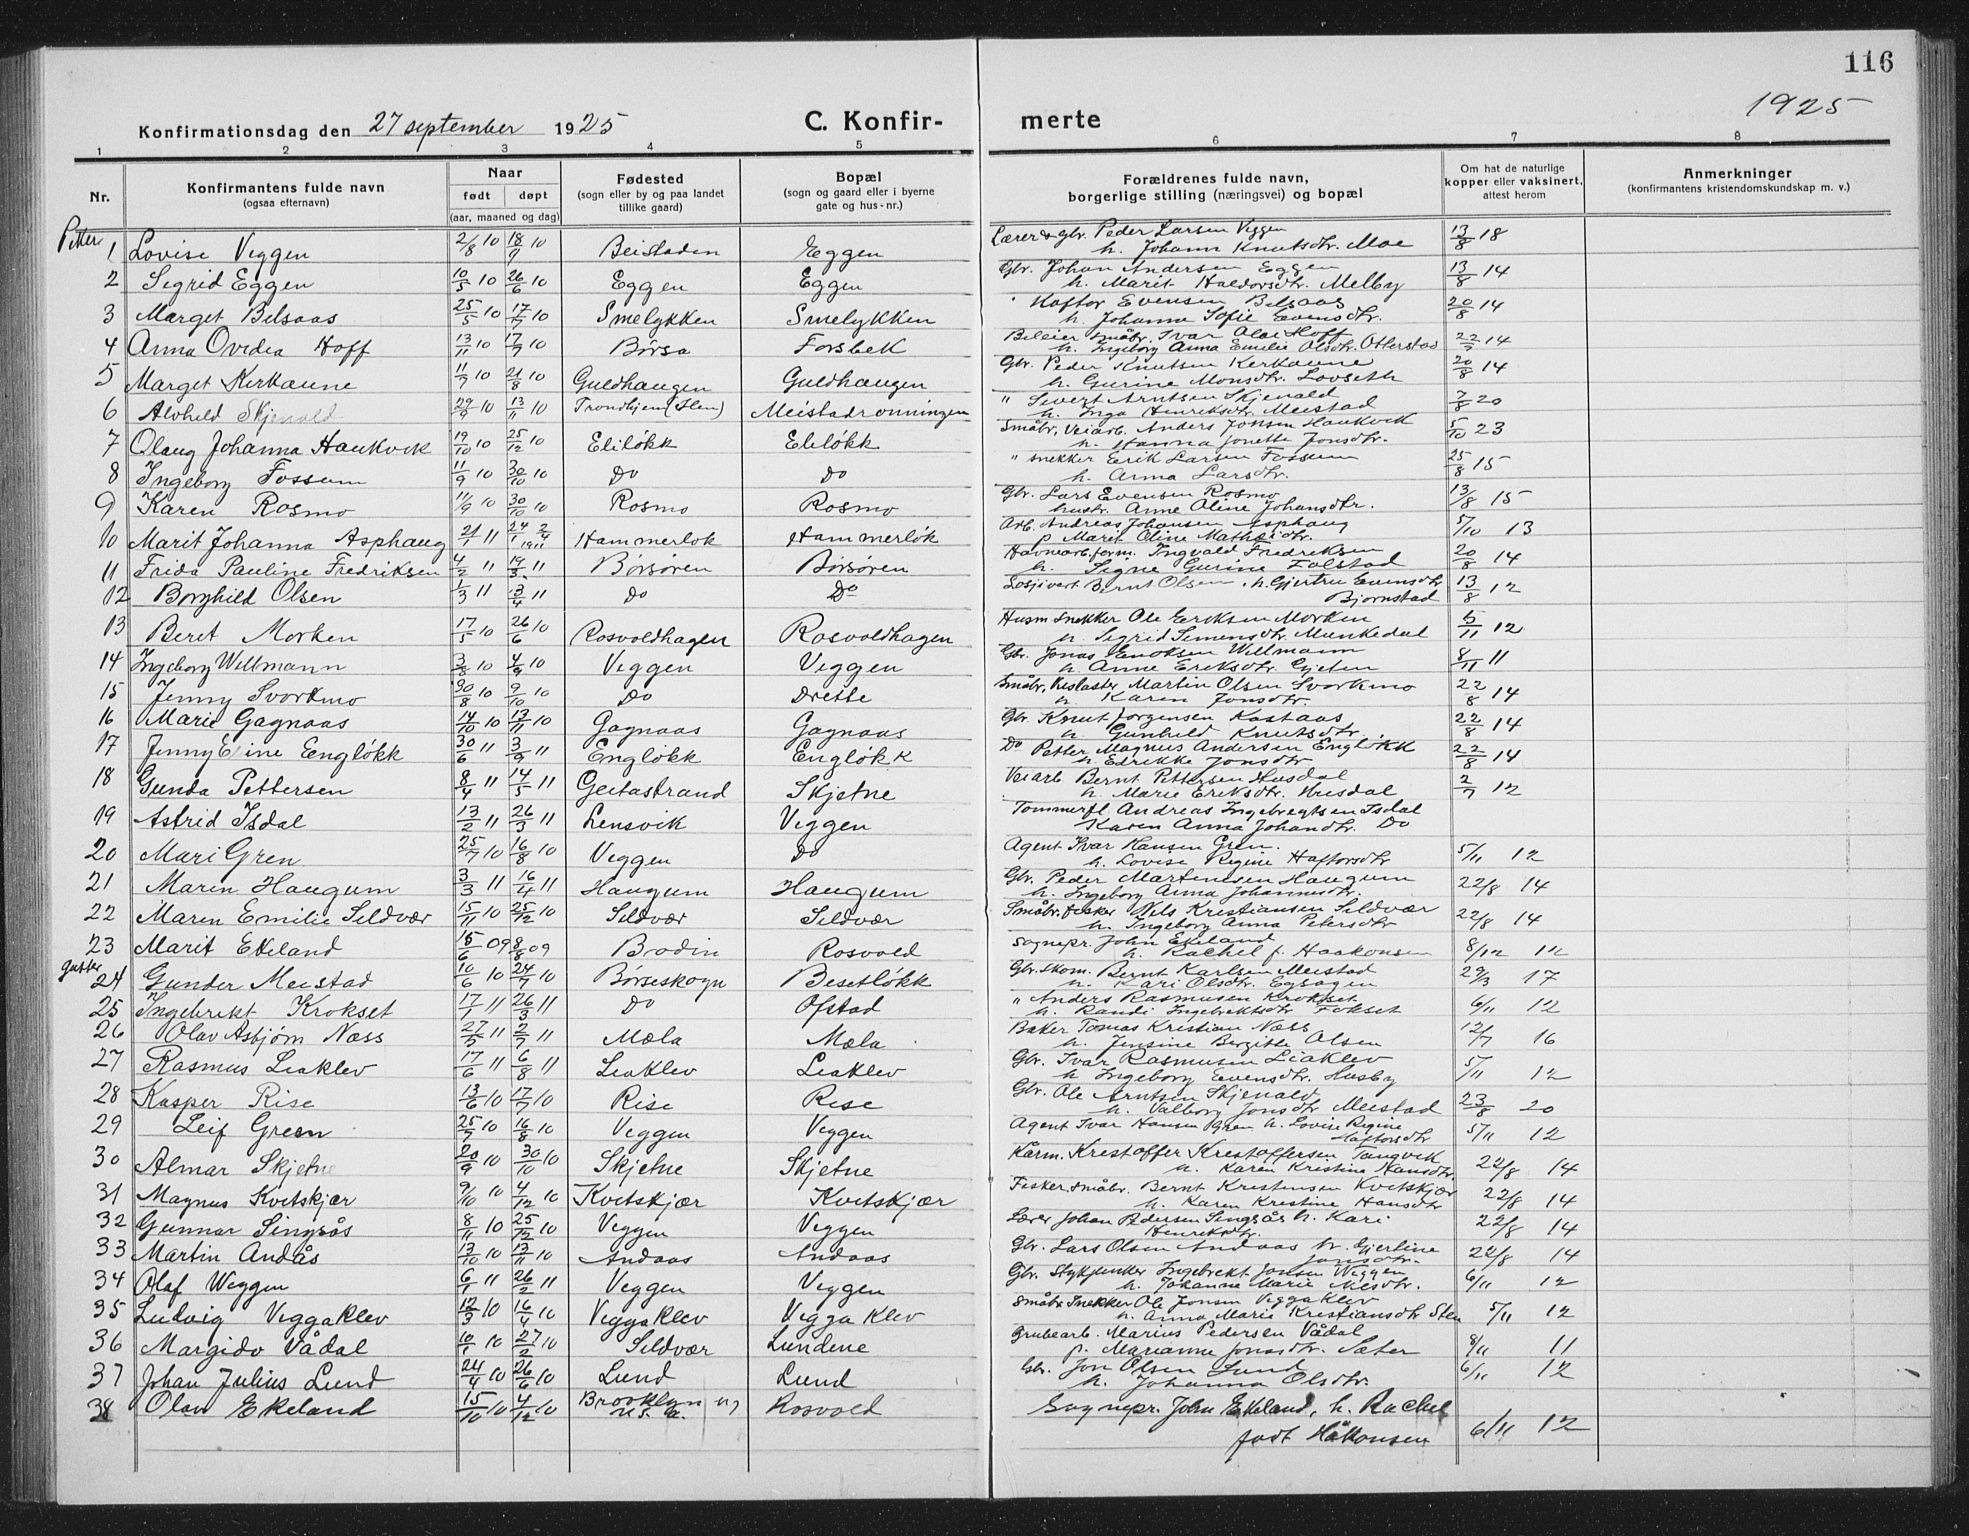 116
1925
Konfirmationsdag den 27 september 1925 C. Konfirmerte
1 2 3 4 5 6 7 8
Nr.
Konfirmantens fulde navn
(ogsaa efternavn)
Naar
født døpt
(aar, maaned og dag)
Fødested
(sogn eller by og paa landet
tillike gaard)
Bopæl
(sogn og gaard eller i byerne
gate og hus-nr.)
Forældrenes fulde navn,
borgerlige stilling (næringsvei) og bopæl
Om hat de naturlige
kopper eller vaksinert,
attest herom
Anmerkninger
(konfirmantens kristendomskundskap m. v.)
1 Lovise Veggen 2/8 10 18/9 10 Beistaden Eggen Lærer & gbr. Peder Larsen Veggen 13/8 18
h. Johann Knutsdtr. Moe
2 Sigrid Eggen 10/5 10 26/6 10 Eggen Eggen Gbr. Johan Andersen Eggen 13/8 14
h. Marit Haldorsdtr. Melby
3 Marget Belsaas 25/5 10 17/7 10 Smelykken Smelykken " Haftor Evensen Belsaas 20/8 14
h. Johanne Sofie Evensdtr.
4 Anna Ovidia Hoff 13/11 10 17/9 10 Børsa Forsbek Beleier småbr. Ivar Olai Hoff 22/9 14
h. Ingeborg Anna Emilie Olsdtr. Otterstad
5 Marget Kirkaune 11/7 10 21/8 10 Guldhaugen Guldhaugen Gbr. Peder Knutsen Kerkaune 20/8 14
h. Gurine Monsdtr. Lovseth
6 Alvhild Skjenald 29/9 10 13/11 10 Trondhjem (Ilen) Meistadrønningen " Sivert Arntsen Skjenald 7/8 20
h. Inga Henriksdtr. Meistad
7 Olaug Johanna Haukvik 19/10 10 25/12 10 Eliløkk Eliløkk Småbr, Veiarb. Anders Jonsen Haukvik 5/10 23
h. Hanna Jonette Jonsdtr.
8 Ingeborg Fossum 11/9 10 30/10 10 Do Do " snekker Erik Larsen Fossum 25/8 15
h. Anna Larsdtr.
9 Karen Rosmo 11/9 10 30/10 10 Rosmo Rosmo Gbr. Lars Evensen Rosmo 13/8 15
hustr. Anne Oline Johansdtr.
10 Marit Johanna Asphaug 21/1 11 24/1 2/4 1911 Hammerløk Hammerløk Arb. Andreas Johansen Asphaug 5/10 13
p Marit Oline Mathisdtr.
11 Frida Pauline Fredriksen 4/2 11 19/3 11 Børsøren Børsøren Havnearb.form. Ingvald Fredriksen 20/8 14
h. Signe Gurine Folstad
12 Borghild Olsen 1/3 11 3/4 11 Do Do Losjivert Bernt Olsen, h. Gjertru Evensdtr 13/8 12
Bjørnstad
13 Beret Morken 17/5 10 26/6 10 Rosvoldhagen Rosvoldhagen Husm Snekker Ole Eriksen Morken 5/11 12
h. Sigrid Simensdtr. Munkedal
14 Ingeborg Willmann 3/8 10 4/9 10 Veggen Veggen Gbr. Jonas Enoksen Willmann 8/11 11
h. Anne Eriksdtr. Gjeten
15 Jenny Svorkmo 30/8 10 9/10 10 Do Drette Småbr, Kislaster Martin Olsen Svorkmo 22/8 14
h. Karen Jonsdtr.
16 Marie Gagnaas 14/10 10 13/11 10 Gagnaas Gagnaas Gbr. Knut Jorgensen Kastaas 22/8 14
h. Gunhild Knutsdtr.
17 Jenny Eline Engløkk 30/6 11 3/9 11 Engløkk Engløkk Do Petter Magnus Andersen Engløkk 22/8 14
h. Edrikke Jonsdtr
18 Gunda Pettersen 8/4 11 14/5 11 Geitastrand Skjetne Veiarb Bernt Pettersen Husdal 2/7 12
h. Marie Eriksdtr. Husdal
19 Astrid Isdal 13/2 11 26/3 11 Lensvik Veggen Tømmerfl Andreas Ingebregtsen Isdal
Karen Anna Johandtr. Do
20 Mari Gren 25/7 10 16/8 10 Veggen Do Agent Ivar Hansen Gren. 5/11 12
h. Lovise Regine Haftorsdtr
21 Marin Haugum 3/3 11 16/4 11 Haugum Haugum Gbr. Peder Martensen Haugum 22/8 14
h. Ingeborg Anna Johannesdtr.
22 Maren Emilie Sildvær 15/11 10 25/12 10 Sildvær Sildvær Småbr. Fisker Nils Kristiansen Sildvær 22/8 14
h. Ingeborg Anna Petersdtr
23 Marit Ekeland 15/6 09 8/8 09 Bodin Rosvold Sognepr. John Ekeland 8/12 12
h. Rachel f. Haakonsen
gutter
24 Gunder Meistad 10/6 10 24/7 10 Børseskogn Besetløkk Gbr. Skom. Bernt Karlsen Meistad 29/3 17
h. Kari Olsdtr. Egsagen
25 Ingebrikt Krokset 17/1 11 26/3 11 Do Ofstad " Anders Rasmusen Krokset 6/11 12
h. Randi Ingebrektsdtr Fokset
26 Olav Asbjørn Næss 27/5 11 2/7 11 Mæla Mæla Baker Tomas Kristian Næss 12/7 16
h. Jensine Bergitte Olsen
27 Rasmus Liaklev 17/6 11 6/8 11 Liaklev Liaklev Gbr. Ivar Rasmusen Liaklev 5/11 12
h Ingeborg Evensdtr. Husby
28 Kasper Rise 13/6 10 17/7 10 Rise Rise Gbr. Ole Arntsen Skjenald 23/8 20
h. Valborg Jonsdtr Meistad
29 Leif Green 25/7 10 16/8 10 Veggen Veggen Agent Ivar Hansen Gren h. Lovise Regine 5/11 12
Haftorsdtr
30 Almar Skjetne 20/9 10 30/10 10 Skjetne Skjetne Kårm. Kristoffer Kristoffersen Tangvik 22/8 14
h. Karen Kristine Hansdtr.
31 Magnus Kvitskjær 9/10 10 4/12 10 Kvitskjær Kvitskjær Fisker, småbr. Bernt Kristensen Kvitskjær 22/8 14
h. Karen Kristine Hansdtr
32 Gunnar Singsås 8/11 10 25/12 10 Veggen Veggen Lærer Johan Pedersen Singsås h. Kari 22/8 14
Henriksdtr.
33 Martin Andås 13/10 10 13/11 10 Andaas Andaas Gbr. Lars Olsen Andaas h. Gjertine 22/8 14
Jonsdtr.
34 Olaf Weggen 6/1 11 26/2 11 Veggen Veggen Gbr. Stykjunker Ingebrekt Jonsen Weggen 6/11 12
h. Johanne Marie Nilsdtr.
35 Ludvig Viggaklev 12/3 10 16/4 10 Viggaklev Viggaklev Småbr. Snekker Ole Jonsen Viggaklev 5/11 12
h. Anna Marie Kristiansdtr Sten
36 Margido Vådal 10/1 10 27/2 10 Sildvær Lundene Grubearb. Marius Pedersen Vådal 8/11 11
p. Marianne Jonsdtr. Sater
37 Johan Julius Lund 24/4 10 26/6 10 Lund Lund Gbr. Jon Olsen Lund 6/11 12
h. Johanna Olsdtr.
38 Olav Ekeland 15/10 10 4/12 10 Brooklyn U.S.A. Rosvold Sognepr. John Ekeland, h. Rachel
født Håkonsen 6/11 12